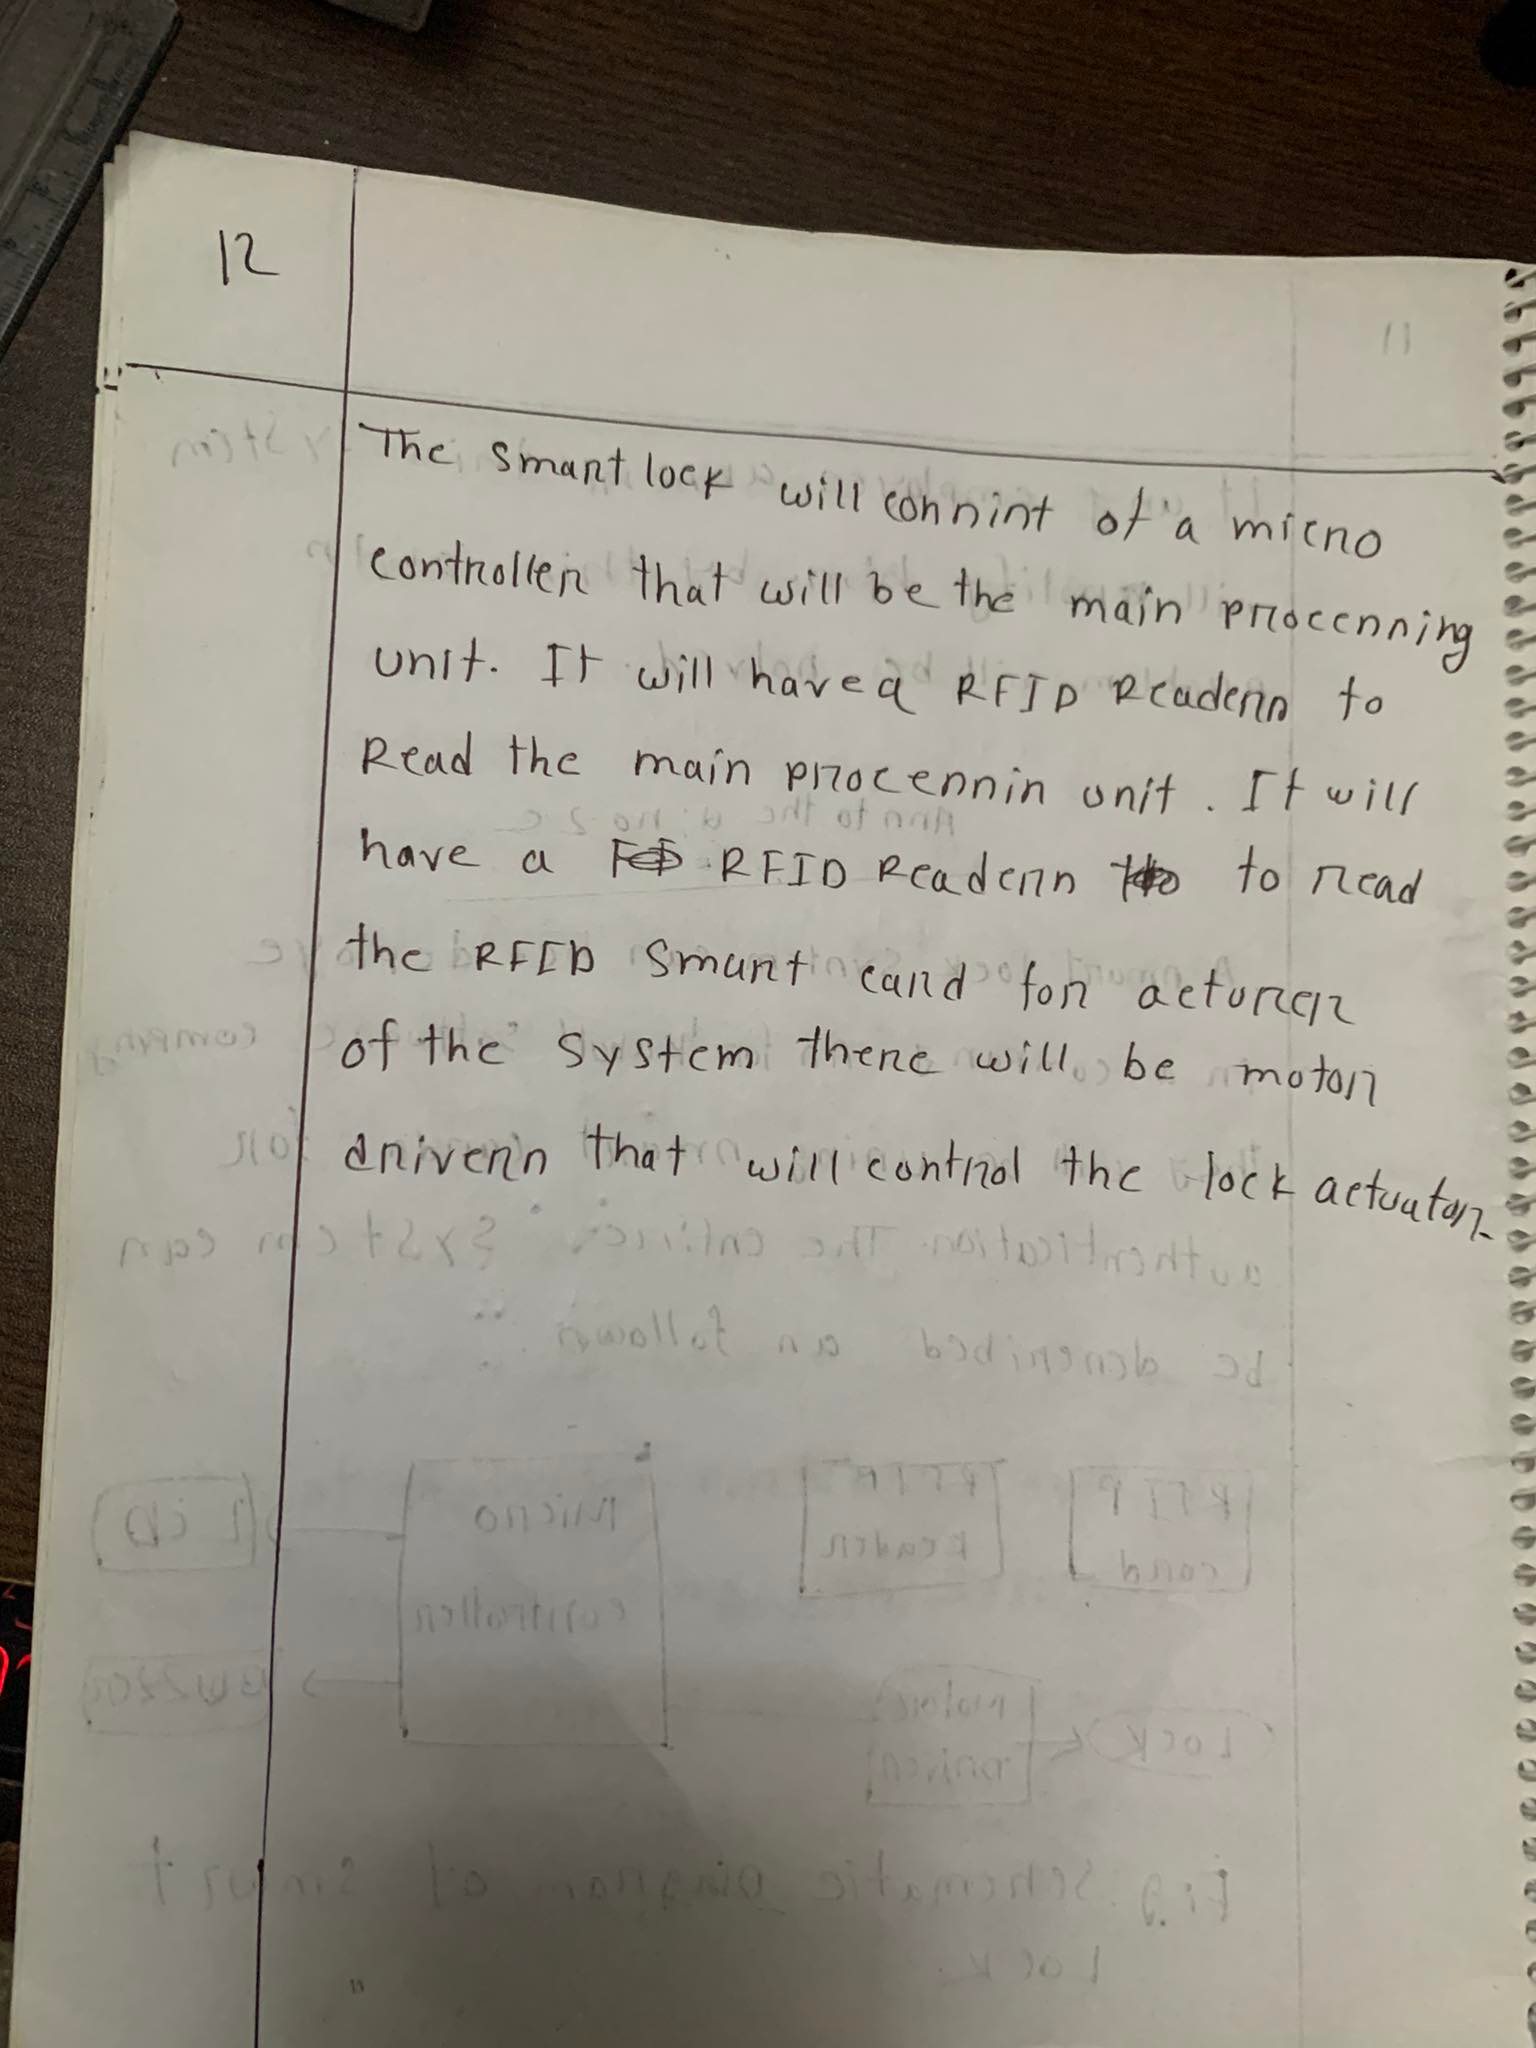 12
The smart lock will connint of a micro
controller that will be the main procenning
unit. It will have a RFID Reader to
Read the main procennin unit. It will
have a RFID Reader to read
the RFID Smart card for
of the System there will be motor
driver that will control the lock actuator.